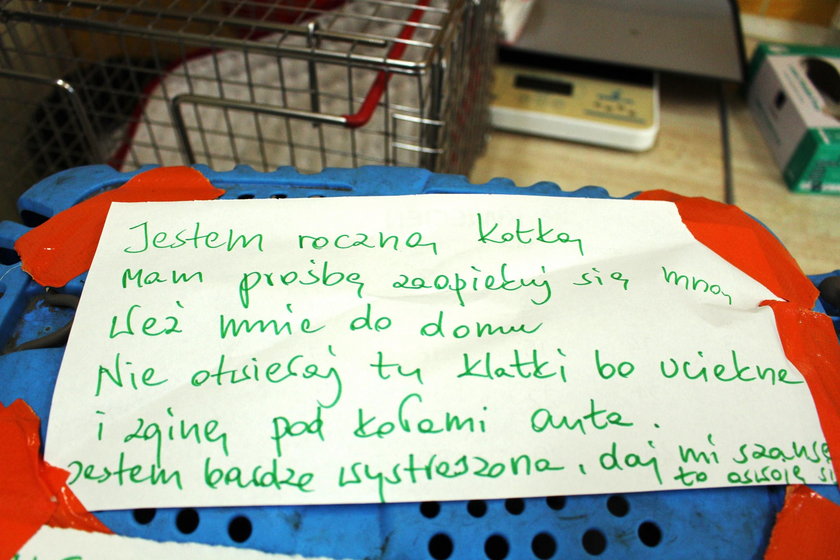 Jestem roczną kotką
Mam prośbę zaopiekuj się mną
Weź mnie do domu
Nie otwieraj tu klatki bo ucieknę
i zginę pod kołami auta.
Jestem bardzo wystreszona, daj mi szansę
to oswoję si